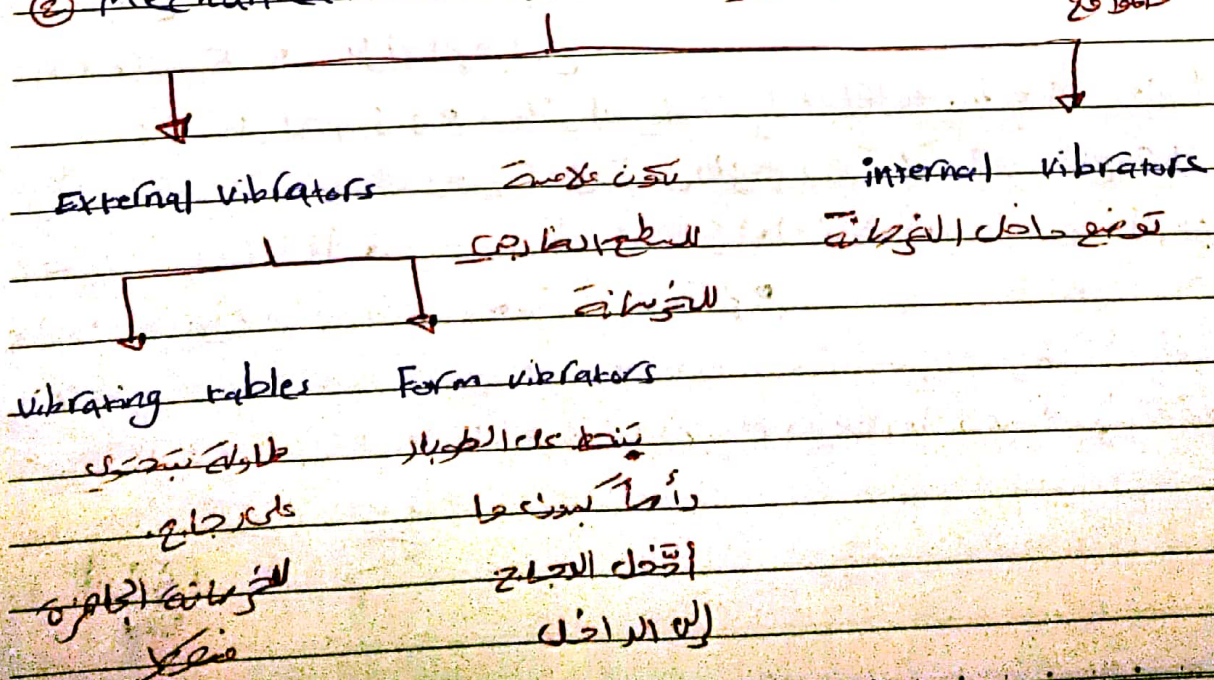 ② Mechanical
External vibrators
تكون ملامسة
للسطح الخارجي
للخرسانة
internal vibrators
توضع داخل الخرسانة
vibrating tables
طاولة بتحتوي
على رجاج.
للخرسانة الجاهزة
Form vibrators
بتنحط على الطوبار
أدخل الرجاج
إلى الداخل